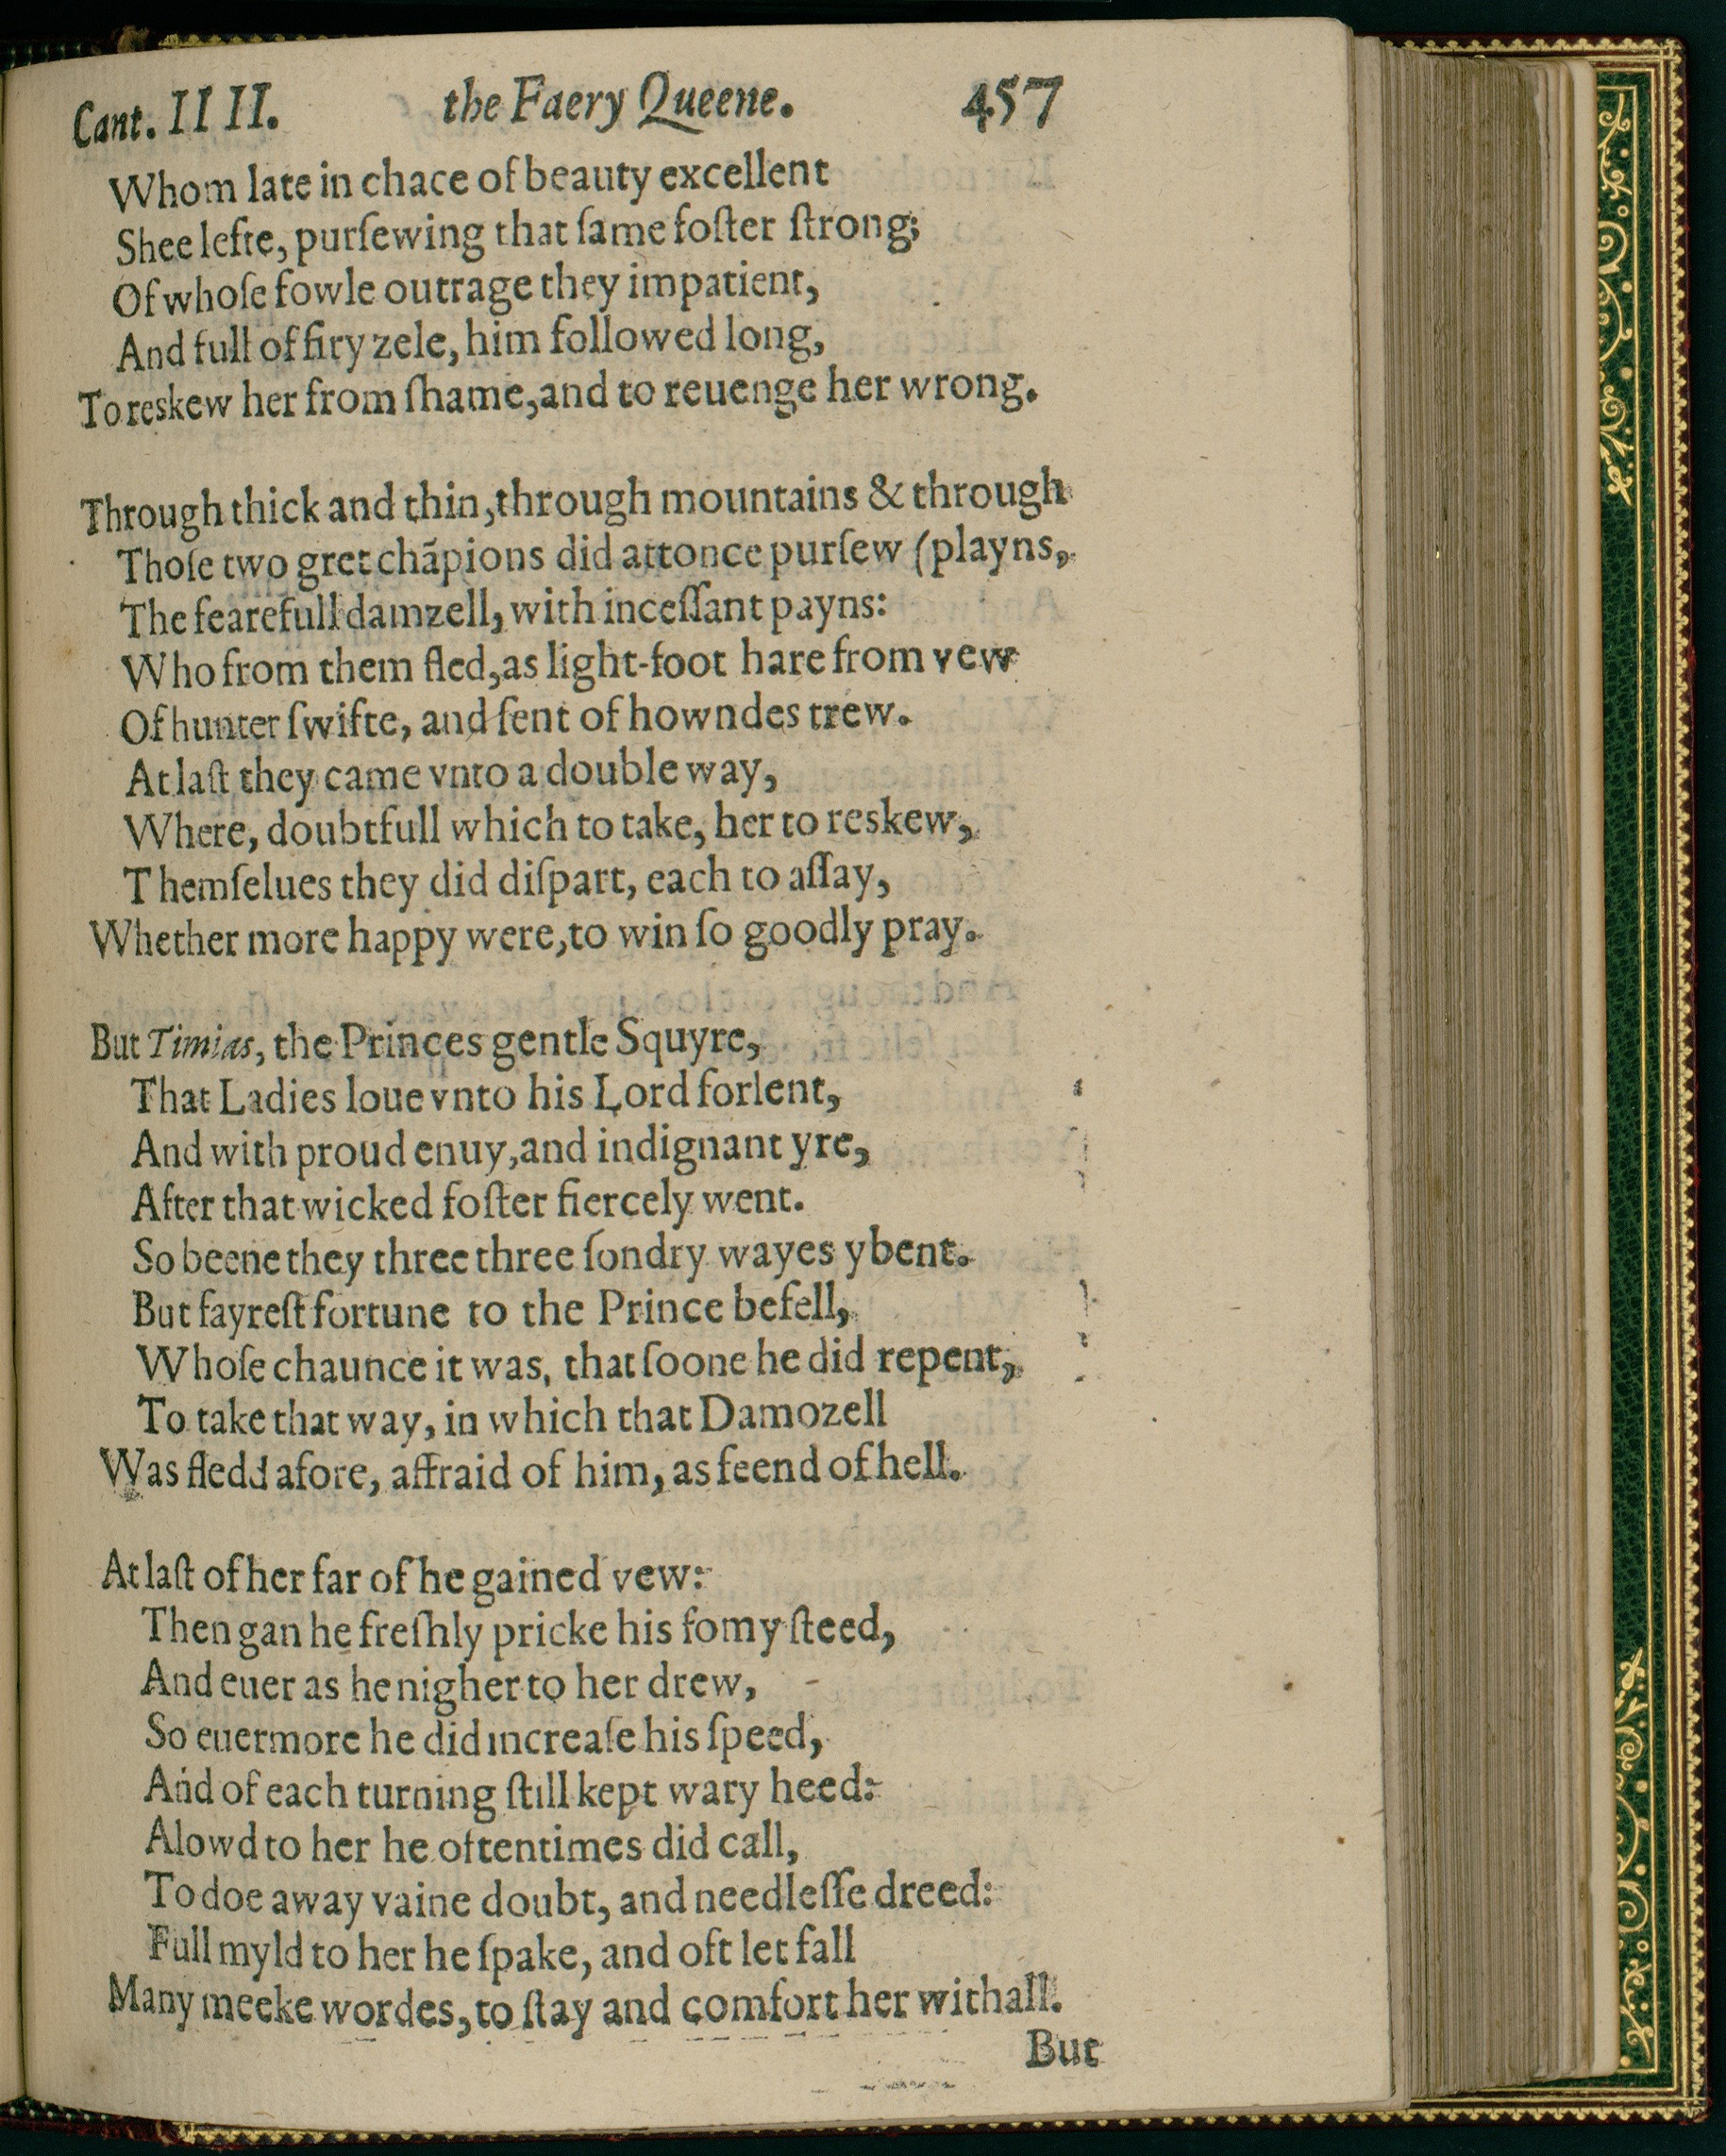 Cant. IIII. the Faery Queene. 457
Whom late in chace of beauty excellent
Shee lefte, purſewing that ſame foſter ſtrong;
Of whoſe fowle outrage they impatient,
And full of firy zele, him followed long,
To reskew her from ſhame, and to reuenge her wrong.
Through thick and thin, through mountains & through
Thoſe two gret chãpions did attonce purſew (playns,
The fearefull damzell, with inceſſant payns:
Who from them fled, as light-foot hare from vew
Of hunter ſwifte, and ſent of howndes trew.
At laſt they came vnto a double way,
Where, doubtfull which to take, her to reskew,
Themſelues they did diſpart, each to aſſay,
Whether more happy were, to win ſo goodly pray.
But Timias, the Princes gentle Squyre,
That Ladies loue vnto his Lord forlent,
And with proud enuy, and indignant yre,
After that wicked foſter fiercely went.
So beene they three three ſondry wayes ybent.
But fayreſt fortune to the Prince befell,
Whoſe chaunce it was, that ſoone he did repent,
To take that way, in which that Damozell
Was fledd afore, affraid of him, as feend of hell.
At laſt of her far of he gained vew:
Then gan he freſhly pricke his fomy ſteed,
And euer as he nigher to her drew,
So euermore he did increaſe his ſpeed,
And of each turning ſtill kept wary heed:
Alowd to her he oftentimes did call,
To doe away vaine doubt, and needleſſe dreed:
Full myld to her he ſpake, and oft let fall
Many meeke wordes, to ſtay and comfort her withall.
But